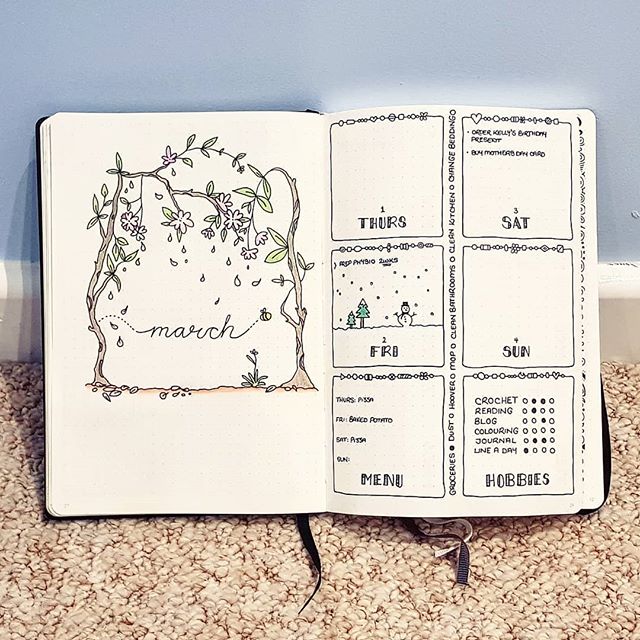 march
1
THURS
2
FRI
) PREP PHYSIO 2WKS
THURS: PIZZA
FRI: BAKED POTATO
SAT: PIZZA
SUN:
MENU
GROCERIES DUST HOOVER MOP CLEAN BATHROOMS CLEAN KITCHEN CHANGE BEDDING
• ORDER KELLY'S BIRTHDAY
PRESENT
• BUY MOTHERS DAY CARD
3
SAT
4
SUN
CROCHET
READING
BLOG
COLOURING
JOURNAL
LINE A DAY
HOBBIES